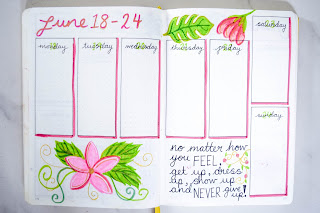 June 18-24
monday
tuesday
wednesday
thursday
friday
saturday
sunday
no matter how
you FEEL,
get up, dress
up, show up
and NEVER give
up!